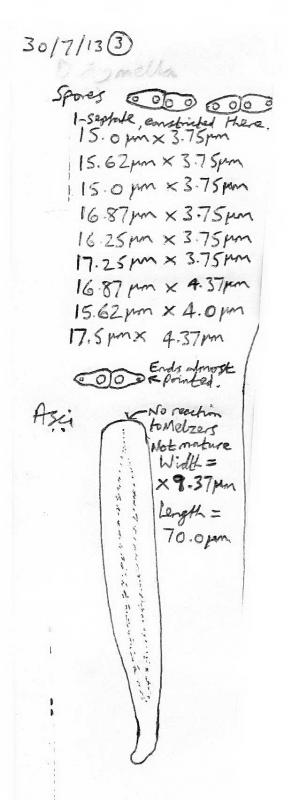 30/7/13 3
Spores
1-septate, constricted there.
15.0 µm x 3.75µm
15.62 µm x 3.75µm
15.0 µm x 3.75µm
16.87 µm x 3.75µm
16.25 µm x 3.75µm
17.25 µm x 3.75µm
16.87 µm x 4.37µm
15.62 µm x 4.0µm
17.5µm x 4.37µm
Ends almost
pointed.
Asci
No reaction
to Melzers
Not mature
Width =
x 9.37µm
Length =
70.0µm